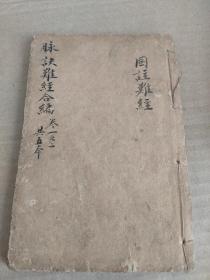 圖註難經
脉訣難經合編 卷一之二
共五本